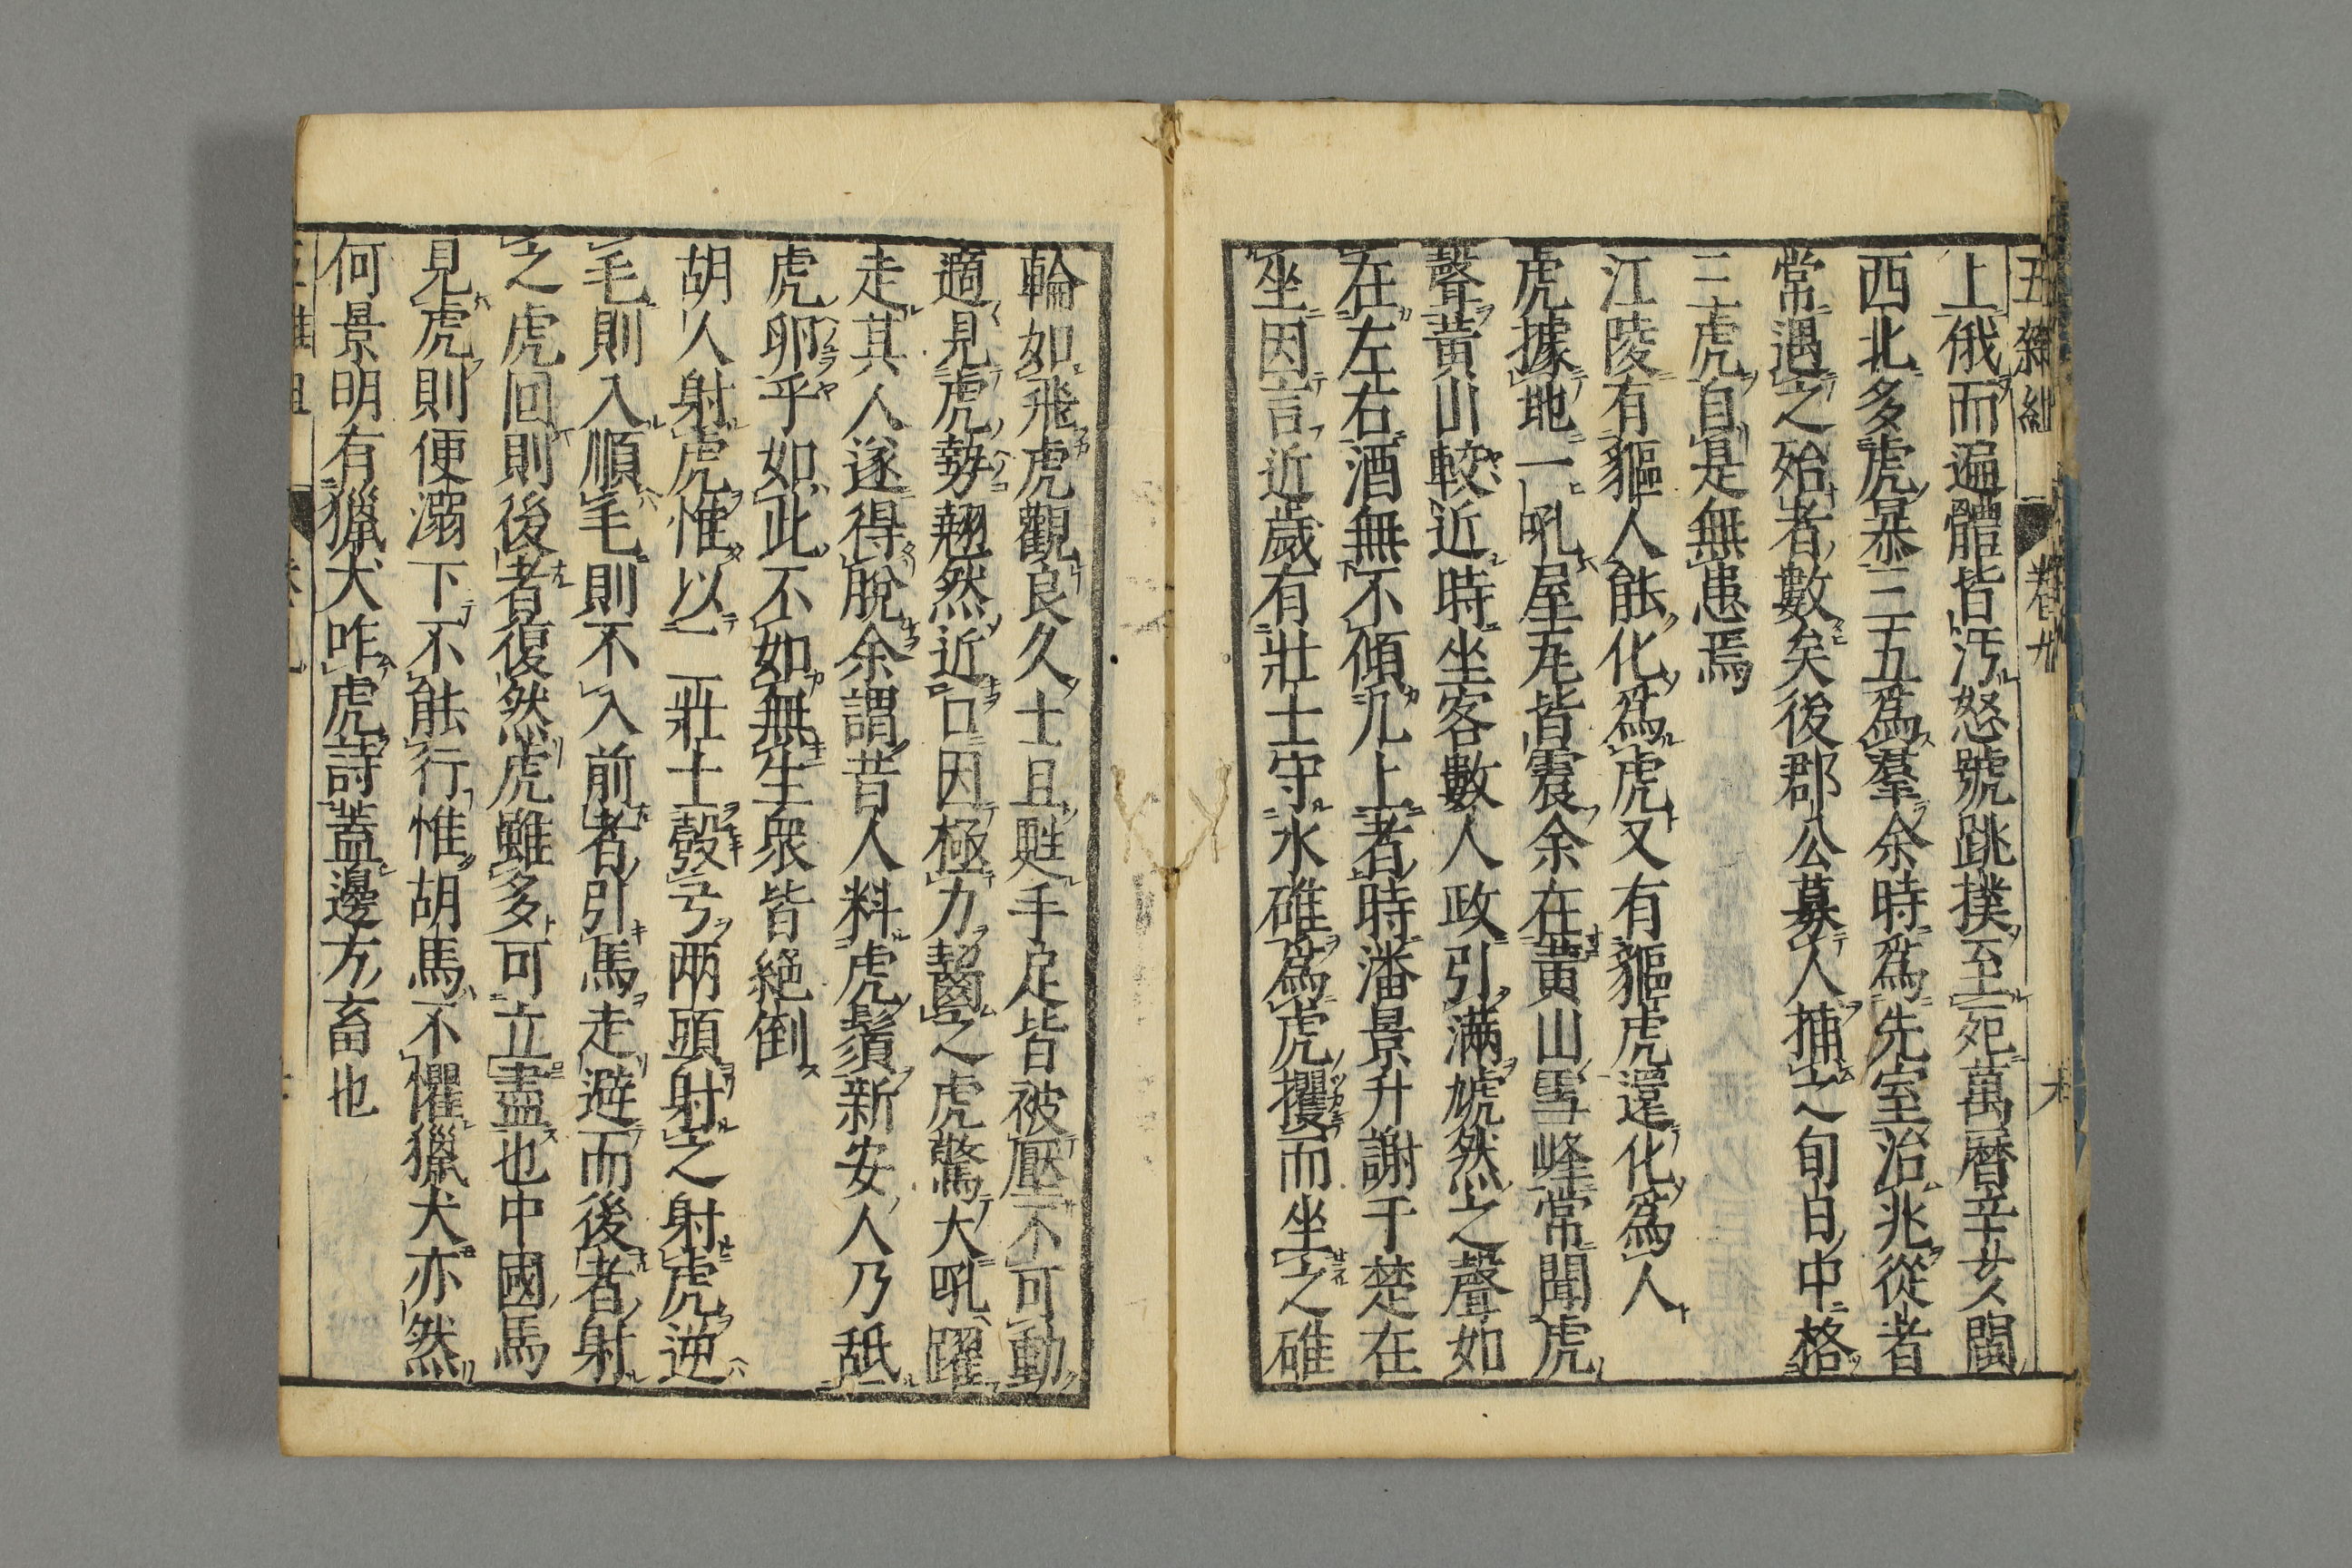 五雜組 卷九 六
上俄而遍體皆汚怒號跳撲至死萬曆辛亥閩
西北多虎暴三五爲羣余時爲先室治兆從者
常遇之殆者數矣後郡公募人捕之旬日中格
三虎自是無患焉
江陵有貙人能化爲虎又有貙虎還化爲人
虎據地一吼屋瓦皆震余在黃山雪峰常聞虎
聲黃山較近時坐客數人政引滿虓然之聲如
在左右酒無不傾几上者時潘景升謝于楚在
坐因言近歲有壯士守水碓爲虎攫而坐之碓
輪如飛虎觀良久士且甦手足皆被壓不可動
適見虎勢翹然近口因極力齧之虎驚大吼躍
走其人遂得脫余謂昔人料虎鬚新安人乃舐
虎卵乎如此不如無生衆皆絕倒
胡人射虎惟以二壯士彀弓兩頭射之射虎逆
毛則入順毛則不入前者引馬走避而後者射
之虎回則後者復然虎雖多可立盡也中國馬
見虎則便溺下不能行惟胡馬不懼獵犬亦然
何景明有獵犬咋虎詩蓋邊方畜也